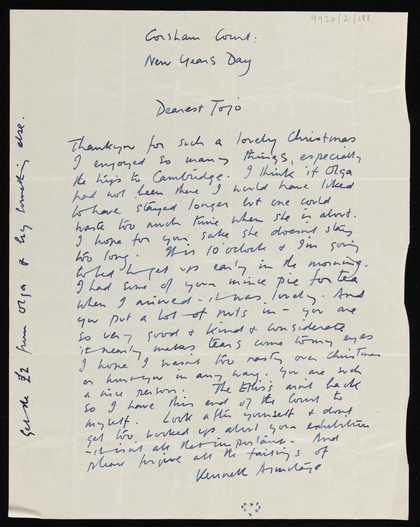 9920/2/188
Corsham Court.
New Years Day
Dearest Tojo
Thankyou for such a lovely Christmas
I enjoyed so many things, especially
the trips to Cambridge. I think if Olga
had not been there I would have liked
to have stayed longer but one could
waste too much time when she is about.
I hope for your sake she doesnt stay
too long. It is 10 o'clock & I'm going
to bed to get up early in the morning.
I had some of your mince pie for tea
when I arrived - it was lovely. And
you put a lot of nuts in - you are
so very good & kind & considerate
it nearly makes tears come to my eyes
I hope I wasn't too nasty over Christmas
or hurt you in any way. You are such
a nice person. The Ellis's aint back
so I have this end of the Court to
myself. Look after yourself & dont
get too worked up about your exhibition
- it isnt all that important. And
please forgive all the failings of
Kenneth Armitage
Get the £2 from Olga & buy something else.